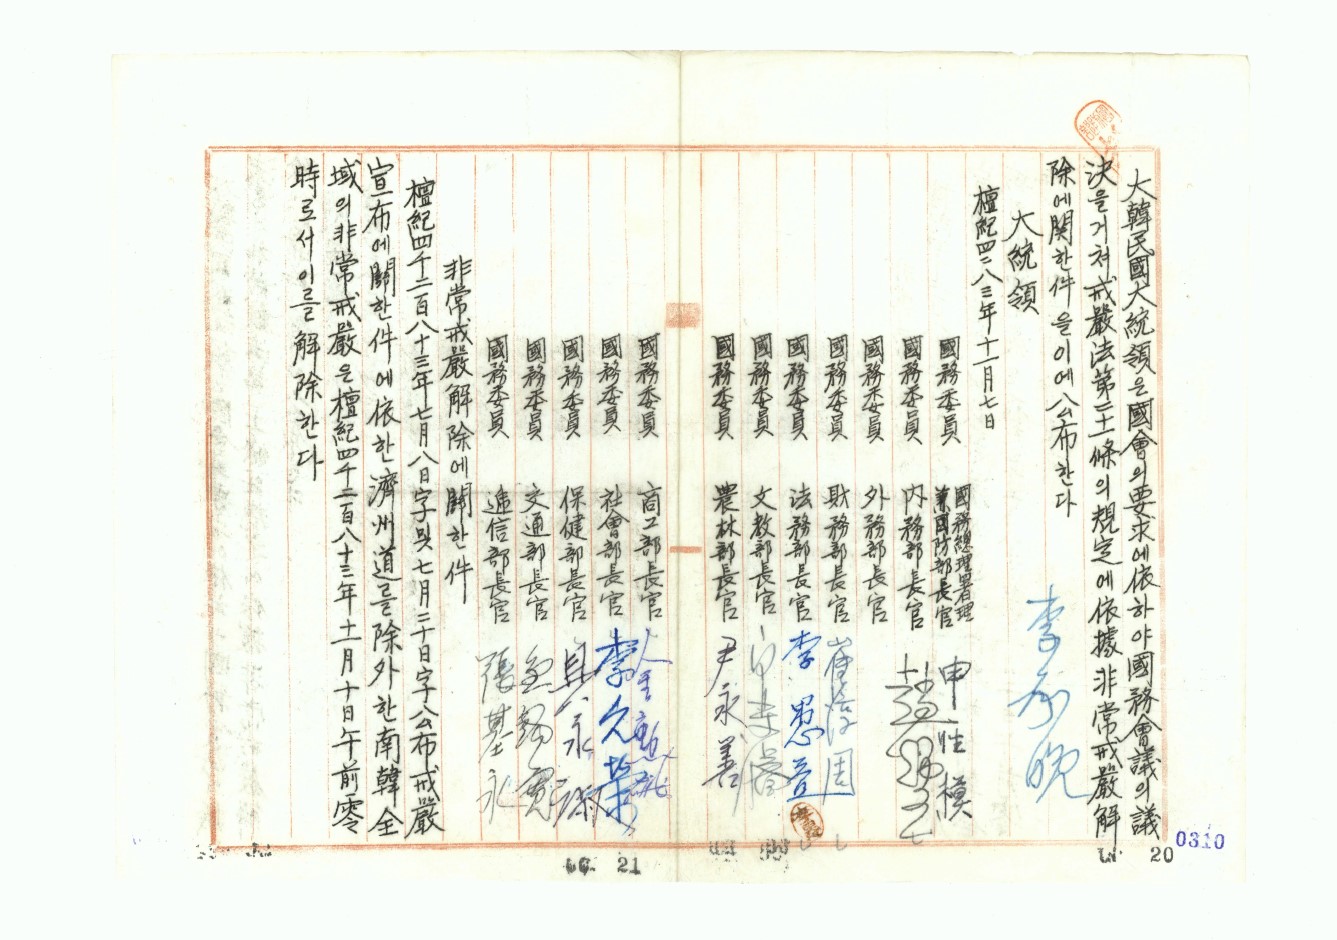 大韓民國大統領은國會의要求에依하야國務會議의議
決을거처戒嚴法第二十一條의規定에依據非常戒嚴解
除에関한件을이에公布한다
大統領 李承晩
檀紀四二八三年十一月七日
國務委員 國務總理署理
兼國防部長官 申性模
國務委員 内務部長官 趙炳玉
國務委員 外務部長官
國務委員 財務部長官 崔淳周
國務委員 法務部長官 李愚益
國務委員 文敎部長官 白樂濬
國務委員 農林部長官 尹永善
國務委員 商工部長官 金勳
國務委員 社會部長官 李允榮
國務委員 保健部長官 具永淑
國務委員 交通部長官 金錫寬
國務委員 遞信部長官 張基永
非常戒嚴解除에關한件
檀紀四千二百八十三年七月八日字및七月二十日字公布戒嚴
宣布에關한件에依한濟州道를除外한南韓全
域의非常戒嚴은檀紀四千二百八十三年十一月十日午前零
時로서이를解除한다
0310
20
21